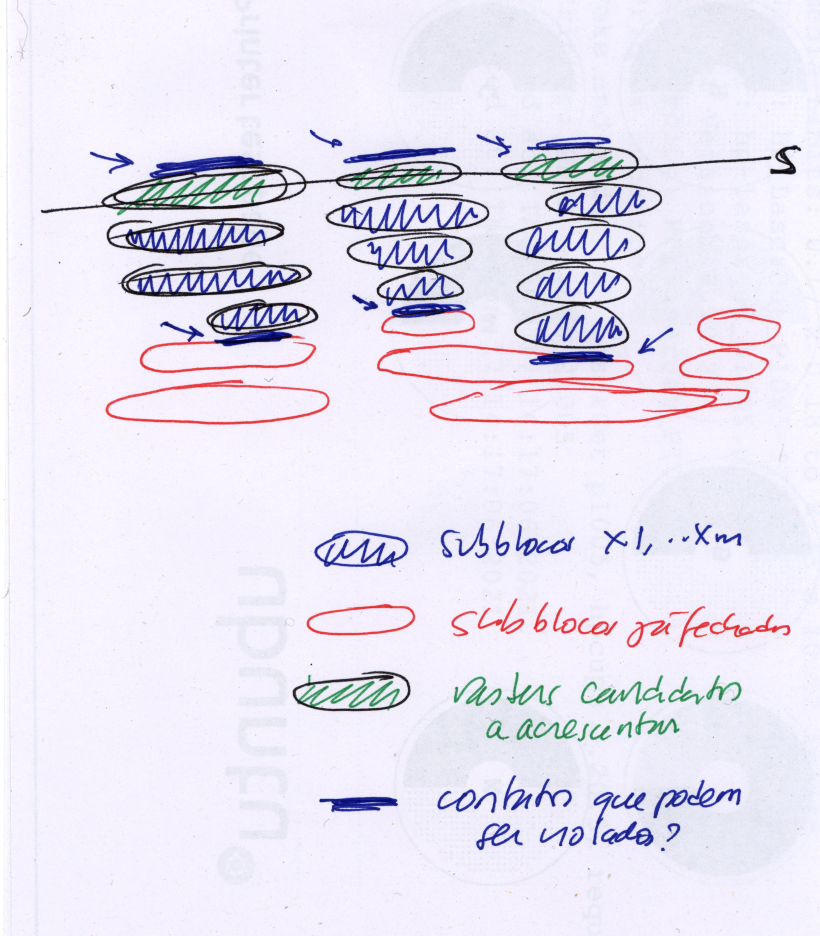 S
subblocos X1,..Xm
subblocos já fechados
rasters candidatos
a acrescentar
contatos que podem
ser violados?
ubuntu